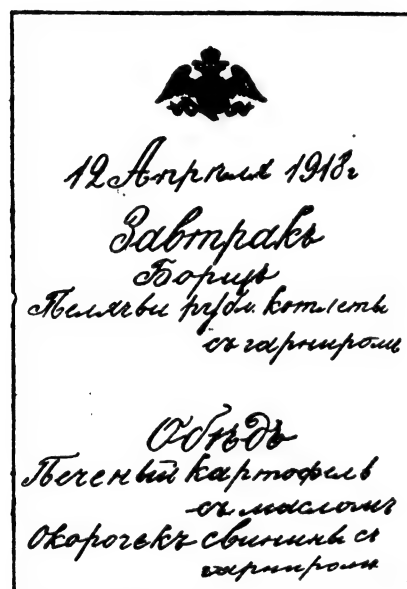 12 Апрѣля 1918 г
Завтракъ
Борщъ
Телячьи рубл. котлеты
съ гарниромъ
Обѣдъ
Печеный картофель
съ масломъ
Окорочекъ свинины съ
гарниромъ